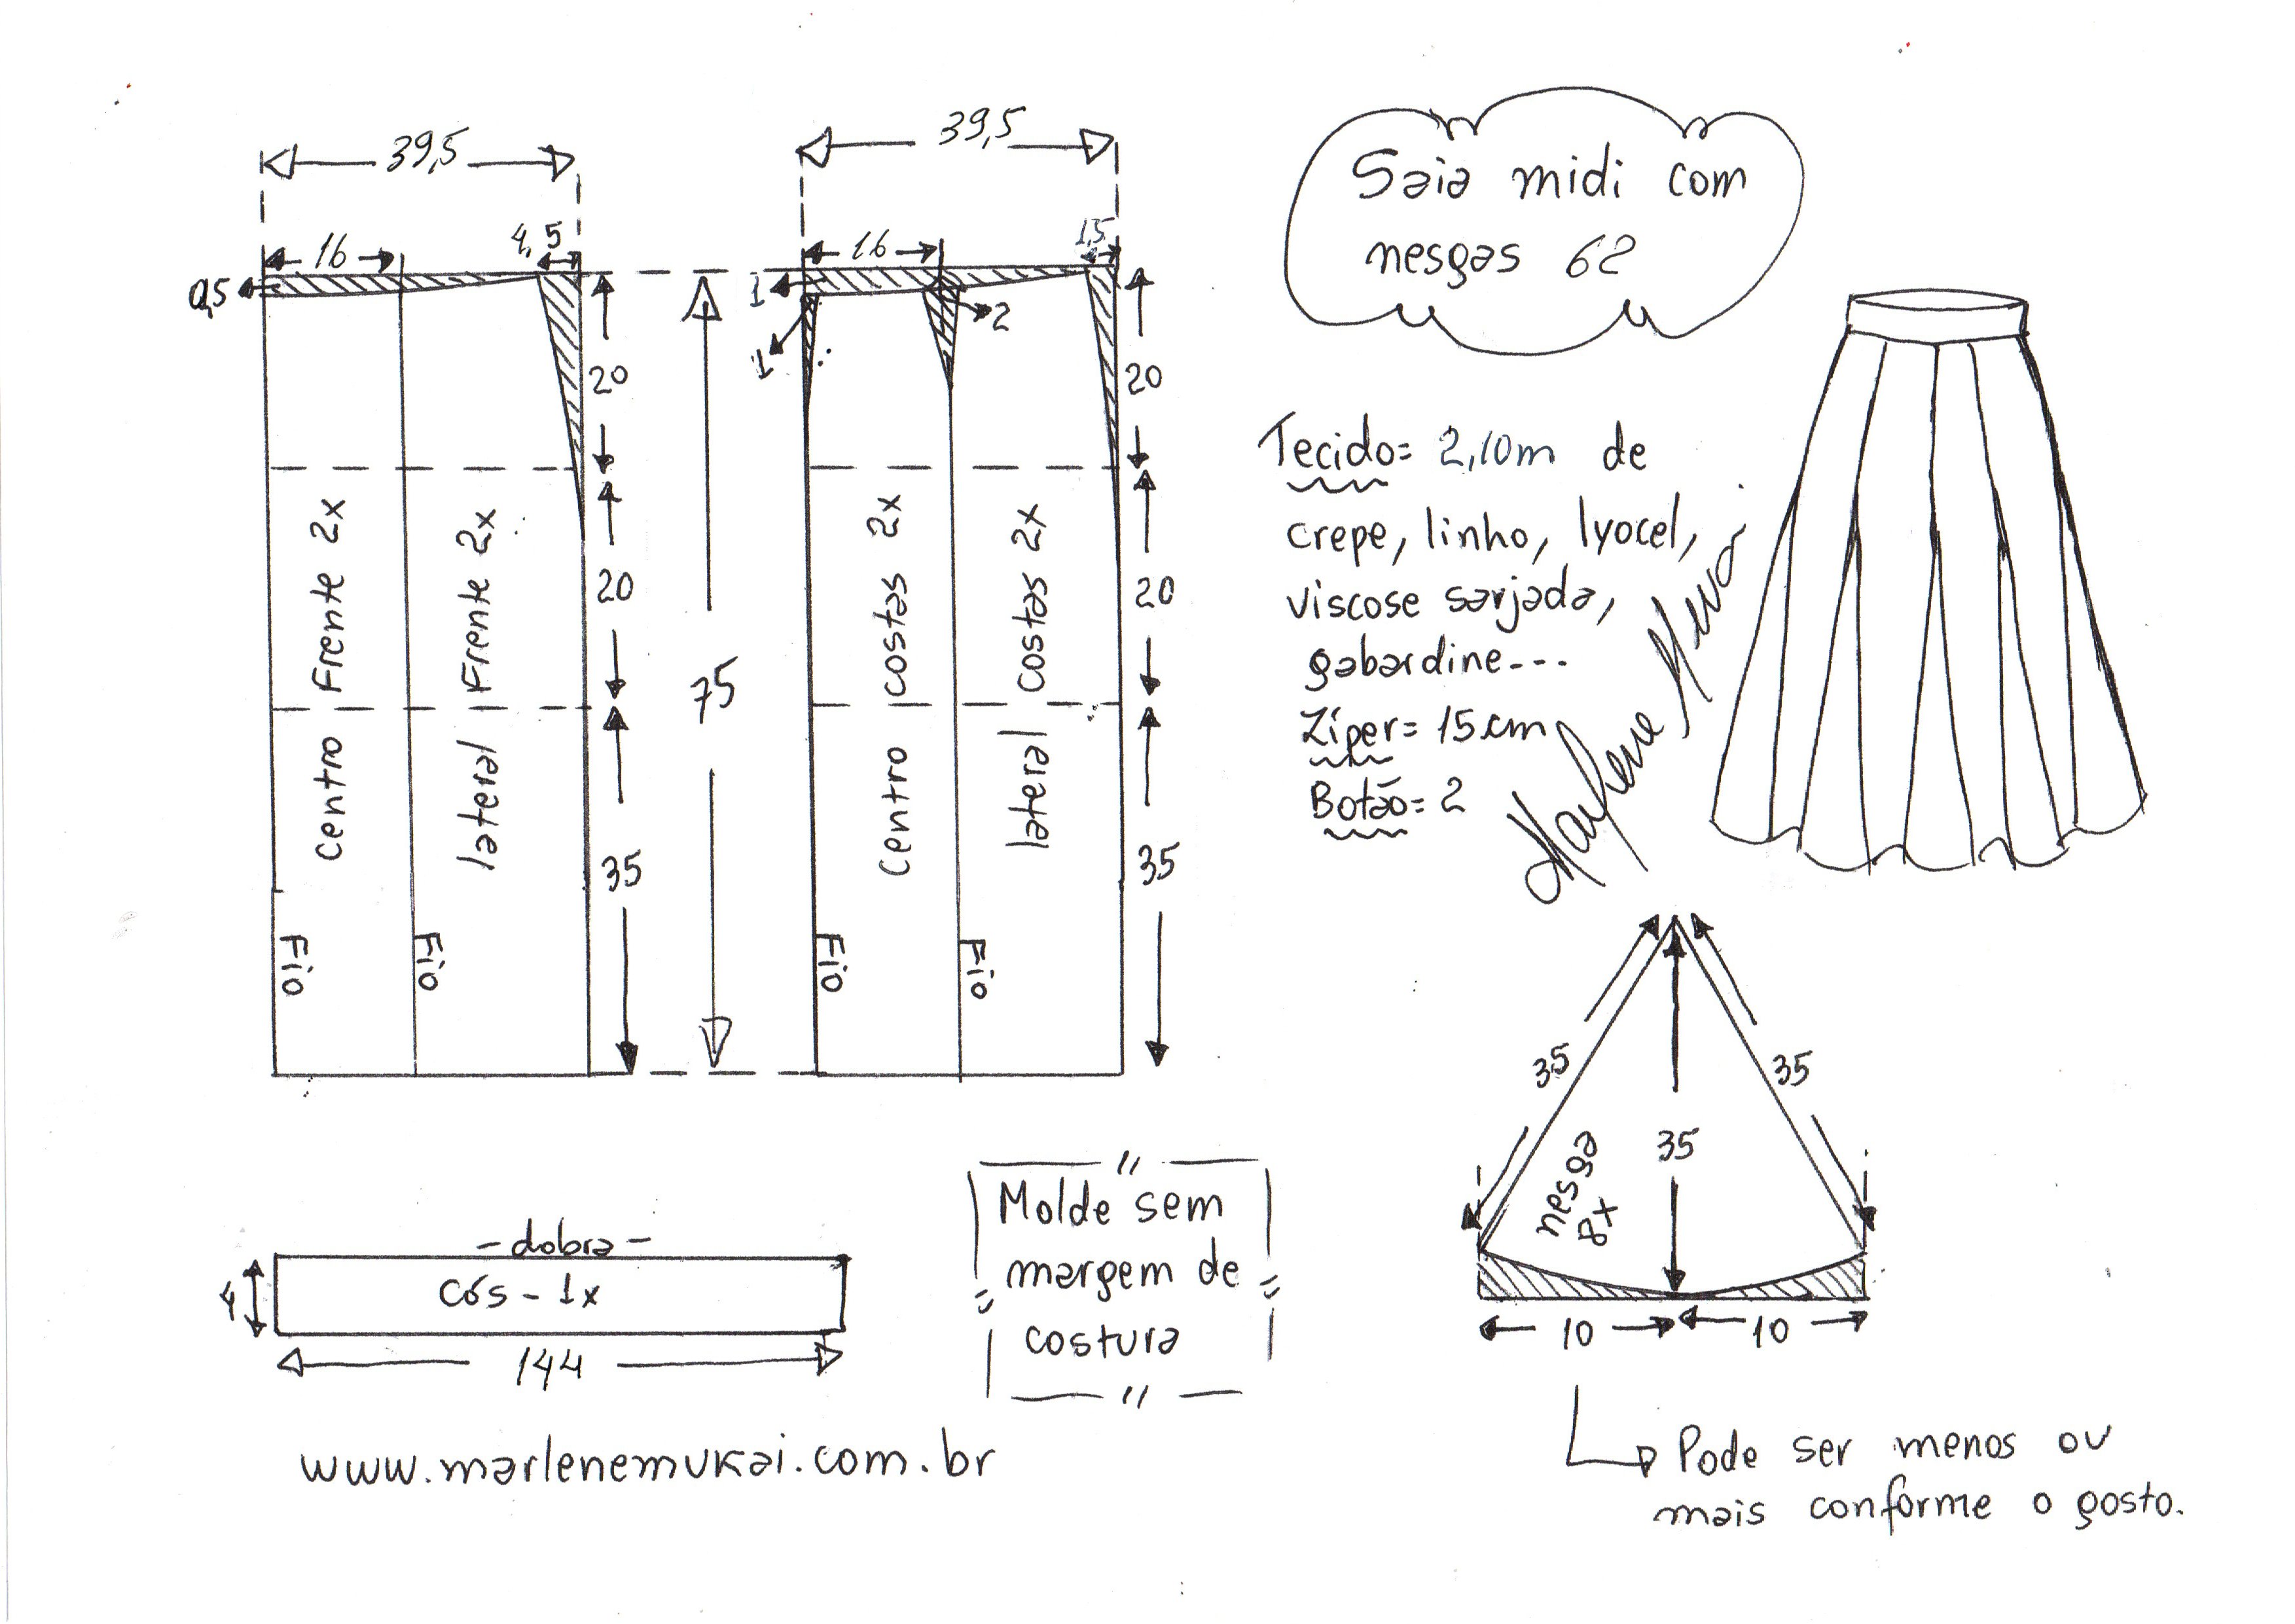 39,5
39,5
16
4,5
16
1,5
0,5
1
1
2
20
20
20
20
35
35
75
Centro Frente 2x
lateral Frente 2x
Centro costas 2x
lateral costas 2x
Fio
Fio
Fio
Fio
Saia midi com
nesgas 62
Tecido= 2,10m de
crepe, linho, lyocel,
viscose sarjada,
gabardine---
Zíper= 15cm
Botão= 2
Marlene Mukai
35
35
35
nesga
8x
10
10
Pode ser menos ou
mais conforme o gosto.
-dobra-
cós - 1x
4
144
Molde sem
margem de
costura
www.marlenemukai.com.br